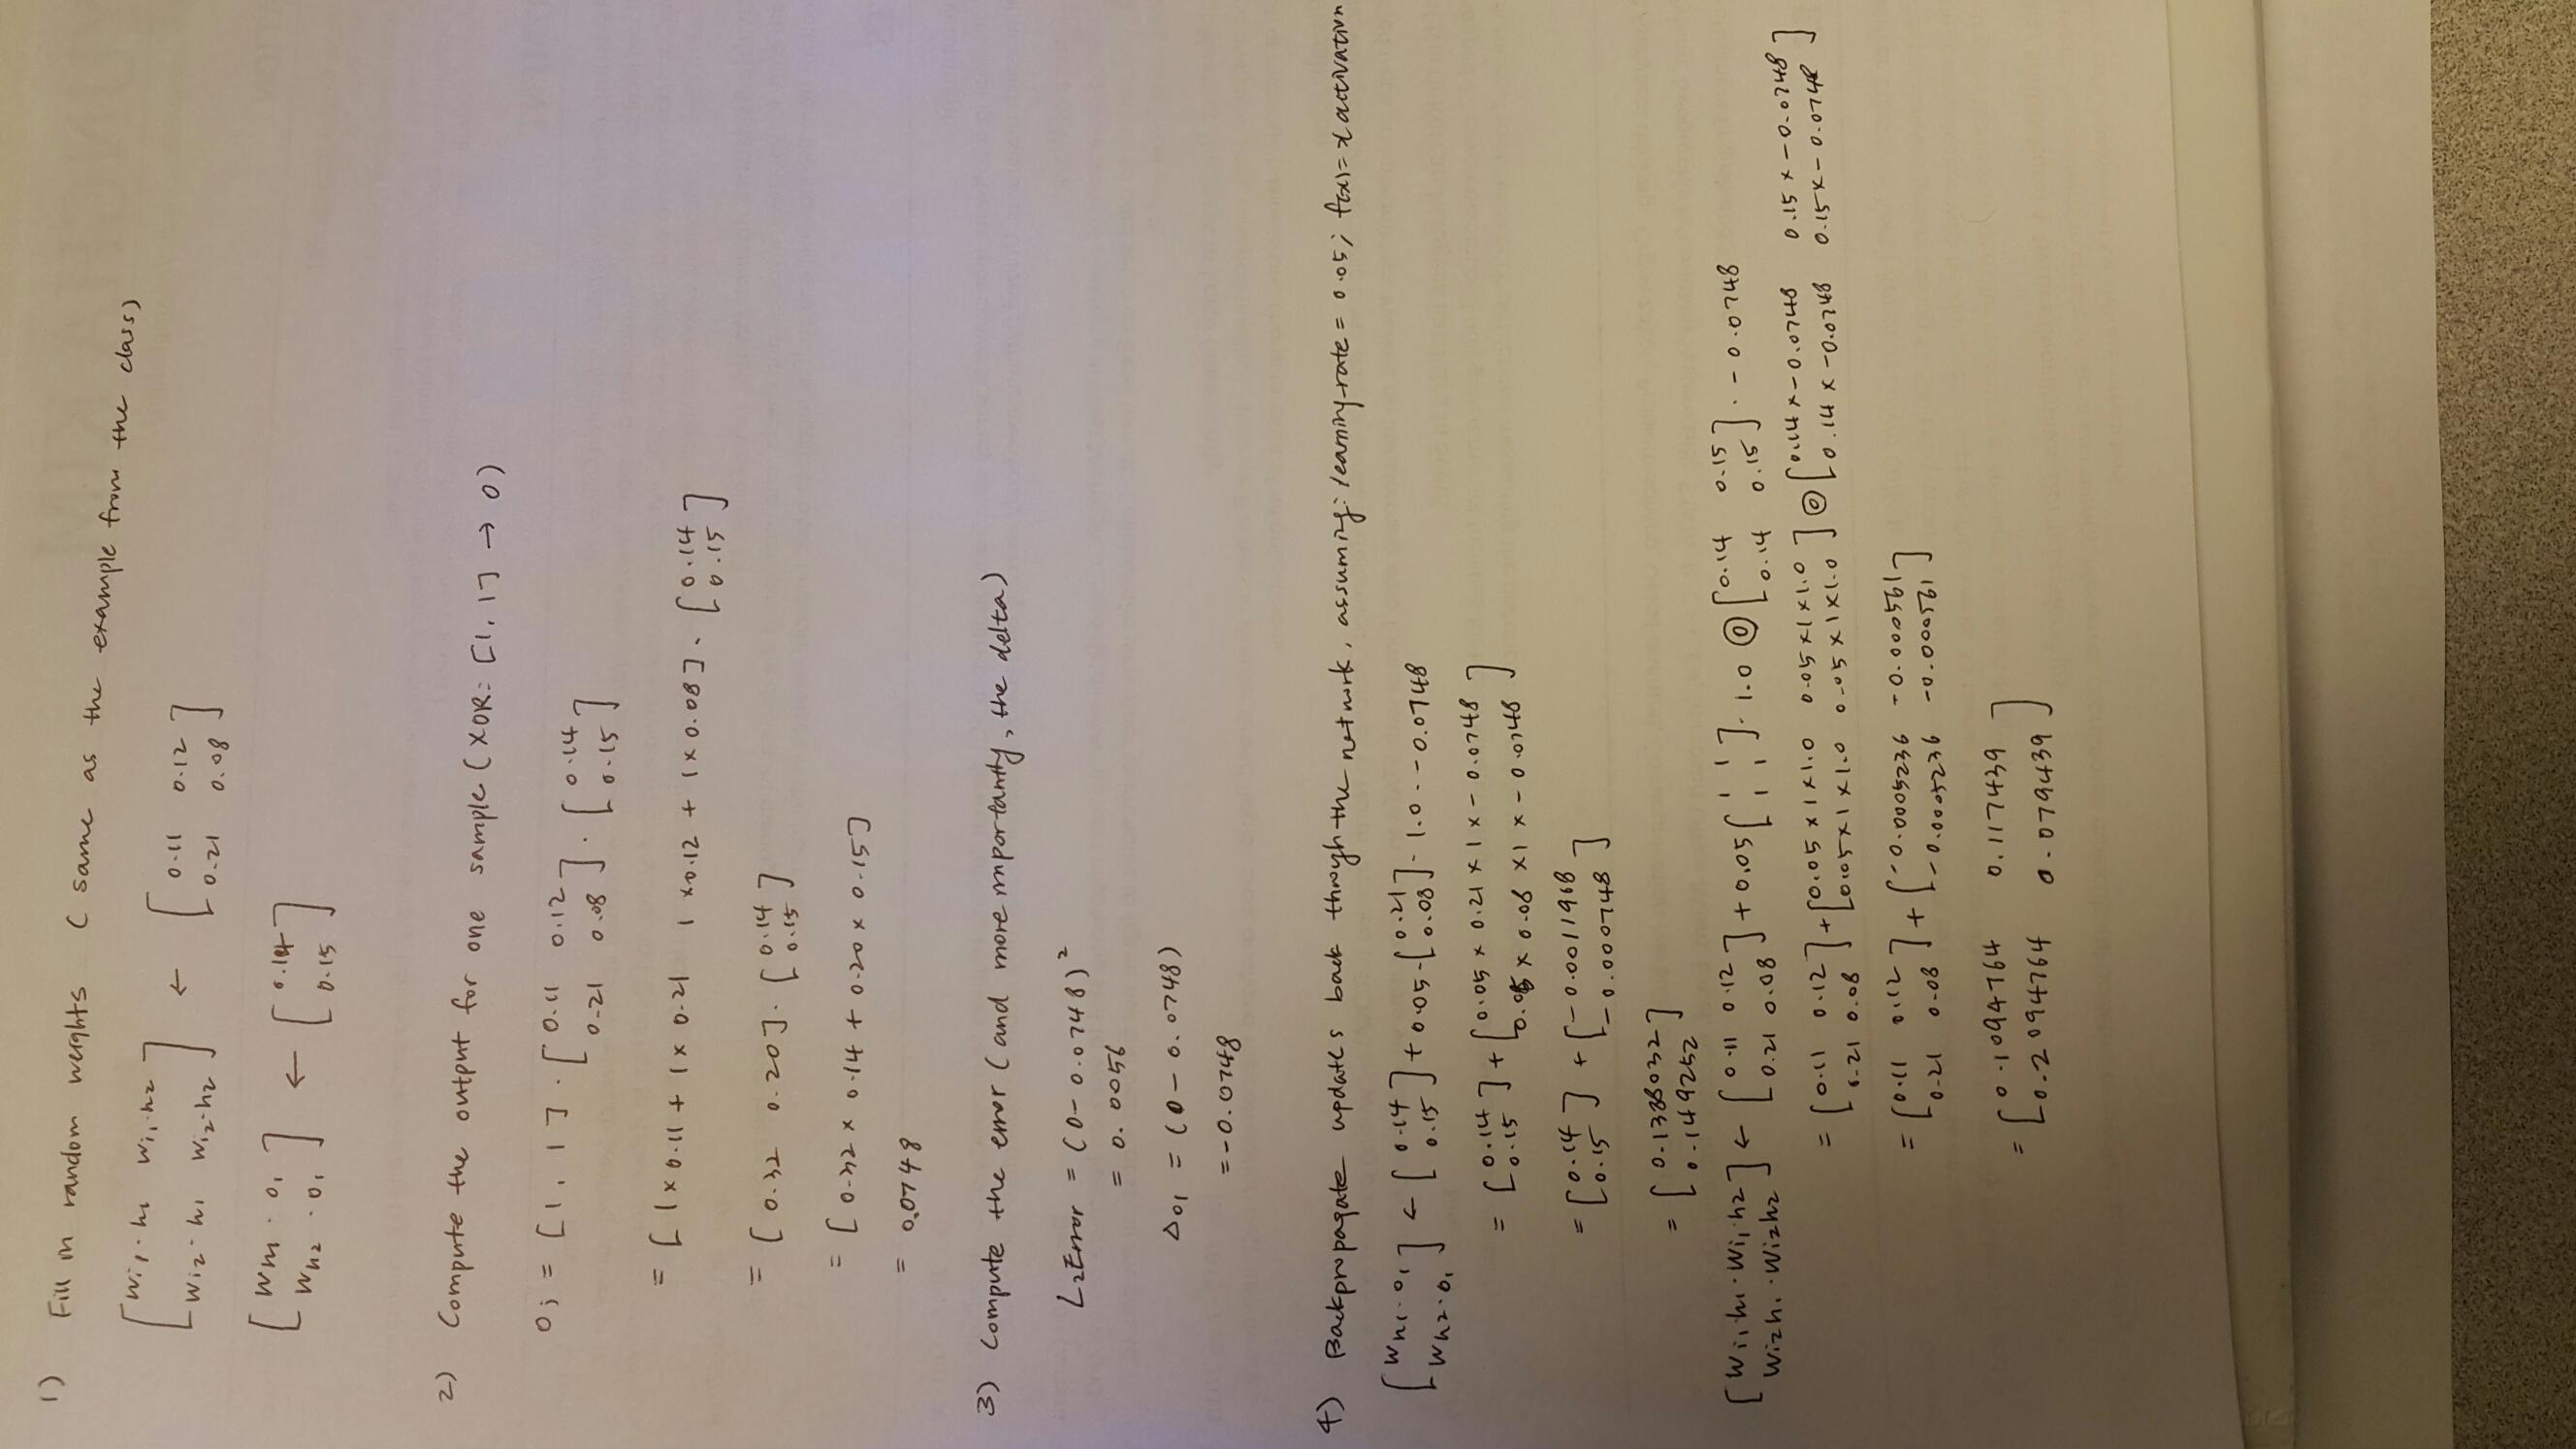 1) Fill in random weights (same as the example from the class)
[wi1·h1 wi1·h2
wi2·h1 wi2·h2] ← [0.11 0.12
0.21 0.08]
[wh1·o1
wh2·o1] ← [0.14
0.15]
2) Compute the output for one sample (XOR: [1, 1] → 0)
oj = [1, 1] · [0.11 0.12
0.21 0.08] · [0.14
0.15]
= [1×0.11 + 1×0.21 1×0.12 + 1×0.08] · [0.14
0.15]
= [0.32 0.20] · [0.14
0.15]
= [0.32 × 0.14 + 0.20 × 0.15]
= 0.0748
3) Compute the error (and more importantly, the delta)
L2Error = (0 - 0.0748)²
= 0.0056
Δo1 = (0 - 0.0748)
= -0.0748
4) Backpropagate updates back through the network, assuming: learning-rate = 0.05; f(x)=x activation
[wh1·o1
wh2·o1] ← [0.14
0.15] + 0.05 · [0.21
0.08] · 1.0 · -0.0748
= [0.14
0.15] + [0.05 × 0.21 × 1 × -0.0748
0.05 × 0.08 × 1 × -0.0748]
= [0.14
0.15] + [-0.0011968
-0.000748]
= [0.1388032
0.149252]
[wi1·h1 · wi1·h2
wi2h1 · wi2h2] ← [0.11 0.12
0.21 0.08] + 0.05 [1 1
1 1] · 1.0 ⊚ [0.14 0.15
0.14 0.15] · -0.0748
= [0.11 0.12
0.21 0.08] + [0.05×1×1.0 0.05×1×1.0
0.05×1×1.0 0.05×1×1.0] ⊚ [0.14×-0.0748 0.15×-0.0748
0.14×-0.0748 0.15×-0.0748]
= [0.11 0.12
0.21 0.08] + [-0.0005236 -0.000561
-0.0005236 -0.000561]
= [0.1094764 0.117439
0.2094764 0.079439]